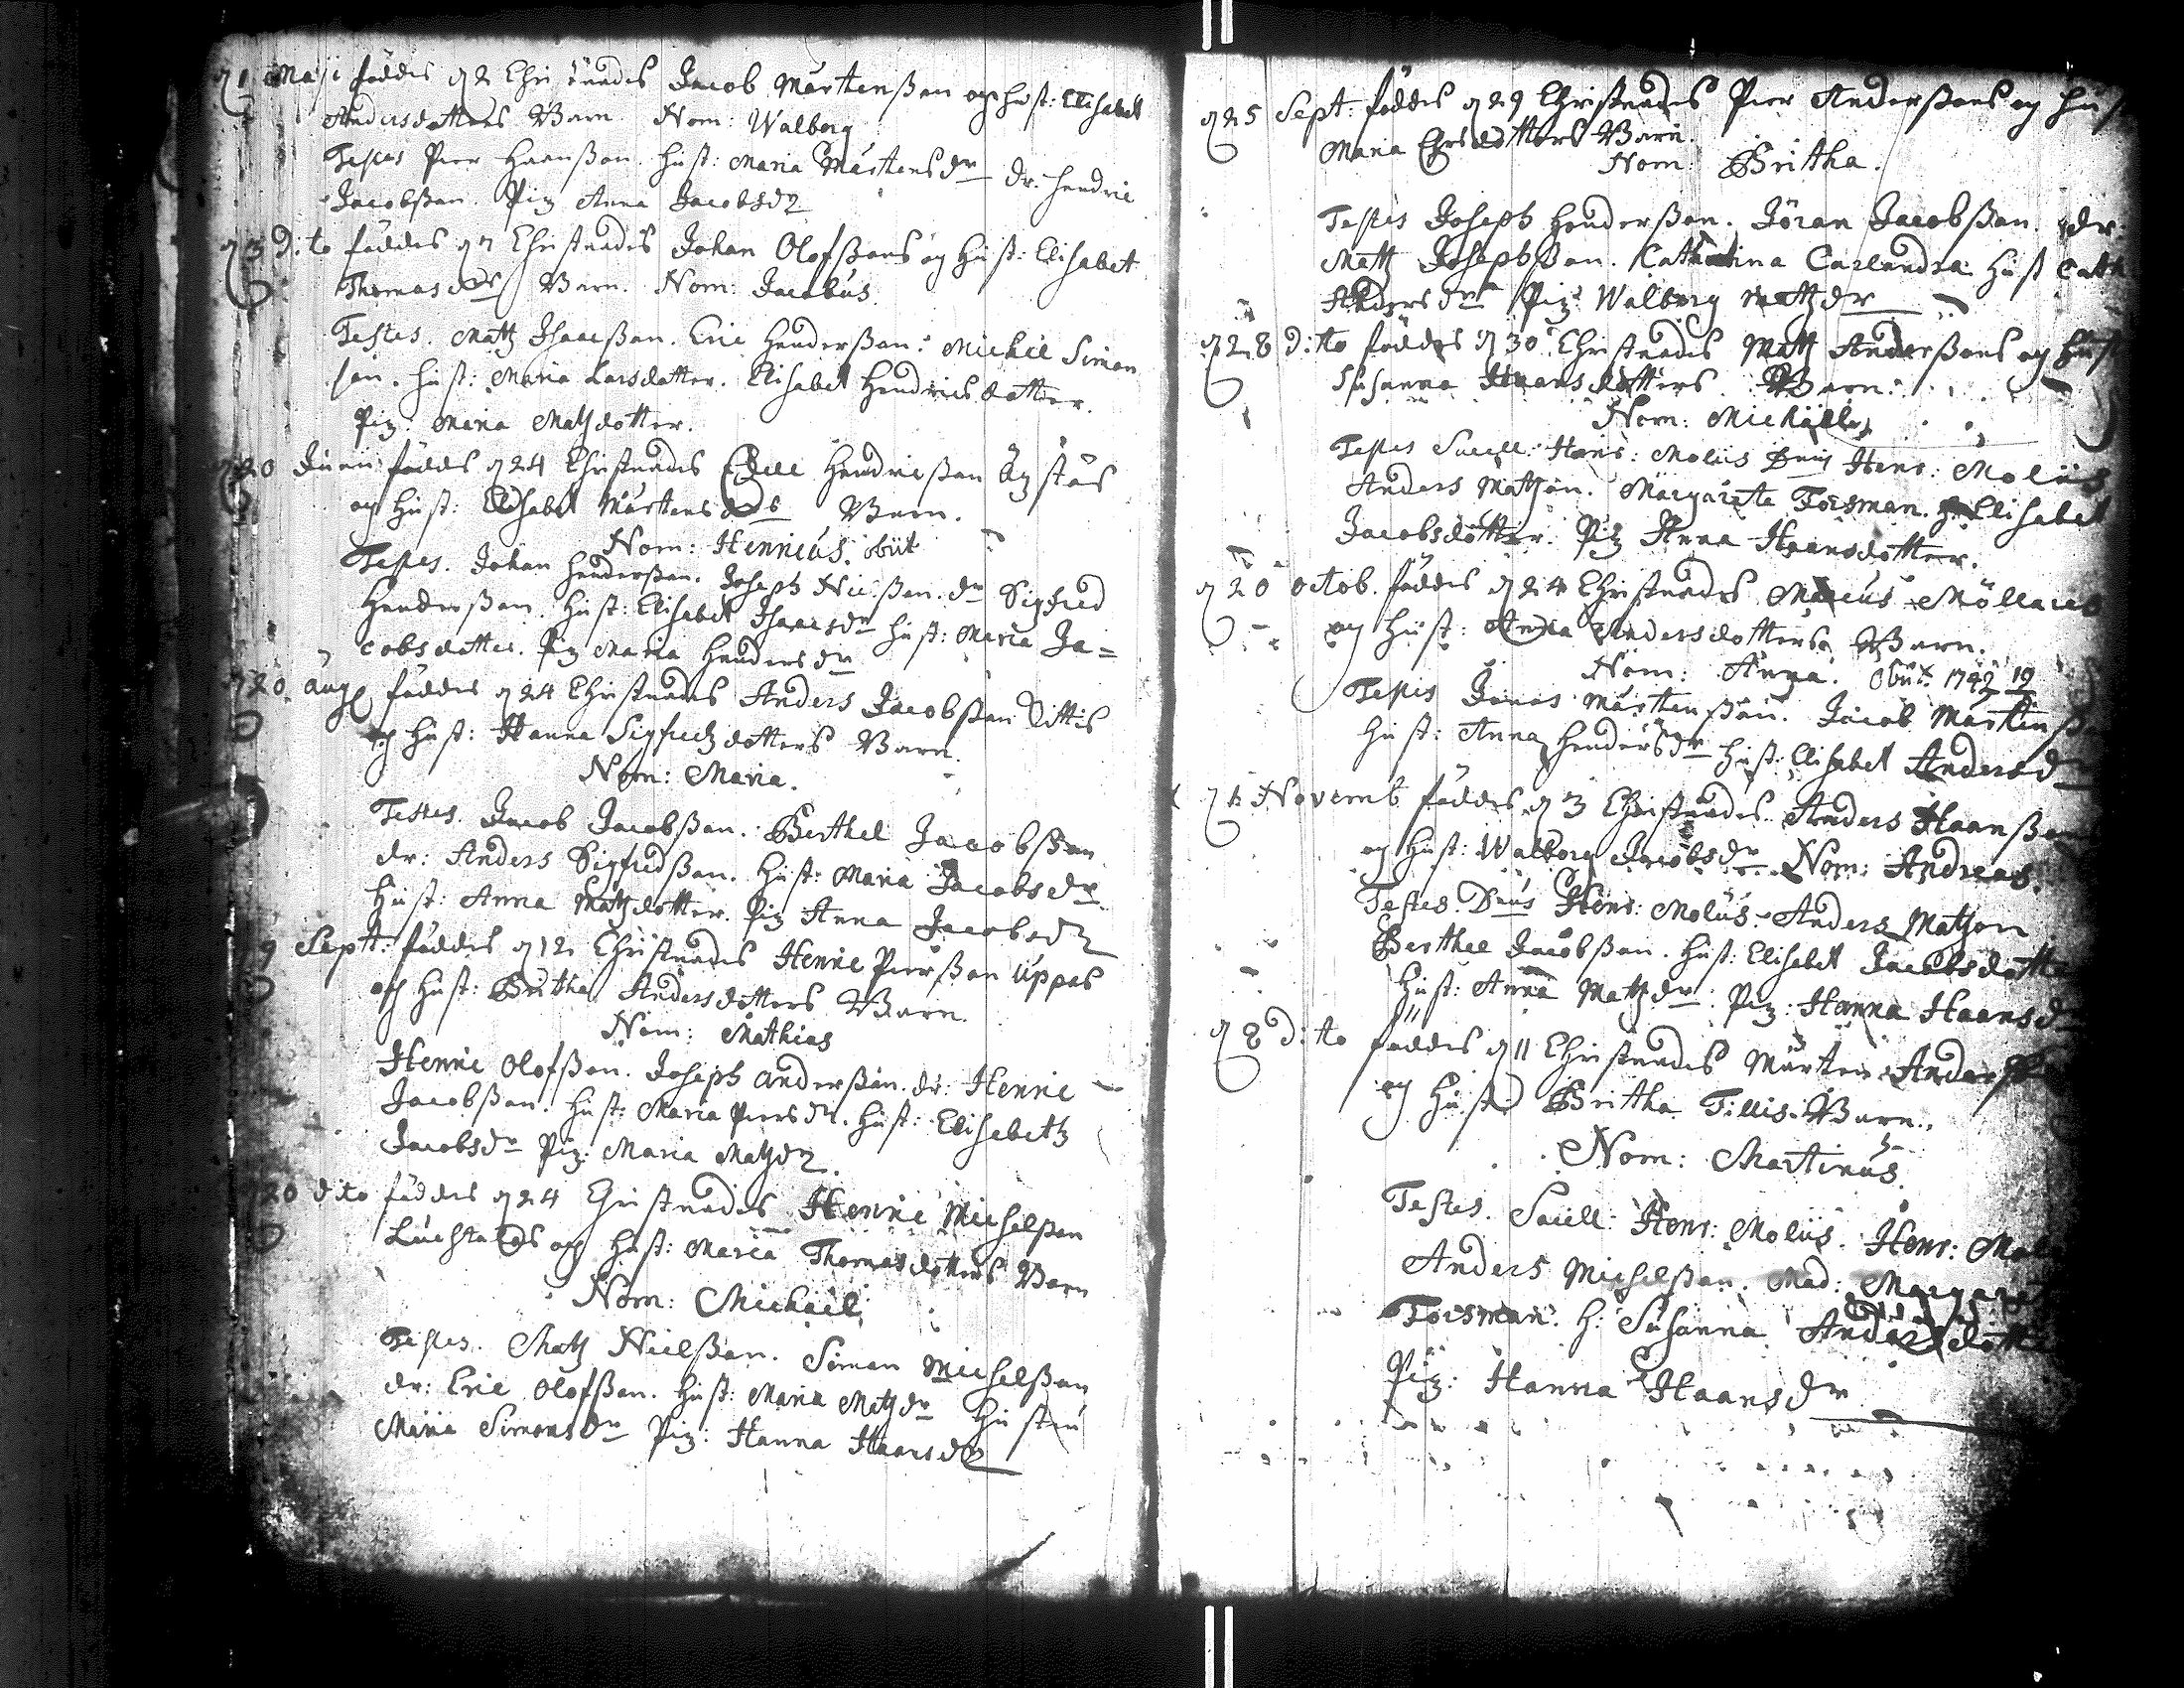 d 1 Maji föddes d 2 Christnades Jacob Mårtenßon och hust: Elisabet
Andersdotters Barn. Nom: Walborg
Testes Pier Hansßon. Hust: Maria Mårtensdr dr: Hendric
Jacobßon. Pig Anna Jacobsdr
d 3 Dito föddes d 7 Christnades Johan Olofßons og Hust: Elisabet
Thomasdrs Barn. Nom: Jacobus.
Testes. Matz Isaacßon. Eric Henderßon. Michel Simon
son. Hust: Maria Larsdotter. Elisabet Hendricsdotter.
Pig: Maria Matzdotter.
d 20 Junii födds d 24 Christnades Hendricßon
og Hust: Elisabet Mårtensdrs Barn.
Nom: Henricus. obiit
Testes. Johan Henderßon. Joseph Nilßon. dr Sigfred
Henderßon. Hust: Elisabet Isaacsdr Hust: Maria Ja=
cobsdotter. Pig Maria Hendersdr
d 20 aug föddes d 24 Christnades Anders Jacobßon
og Hust: Hanna Sigfredzdotters Barn.
Nom: Maria.
Testes. Jacob Jacobßon. Berthel Jacobßon
dr: Anders Sigfredßon. Hust: Maria Jacobsdr
Hust: Anna Matzdotter. Pig Anna Jacobsdr
9 Sept: föddes d 12 Christnades Henric Pierßon Uppas
och Hust: Britha Andersdotters Barn.
Nom: Mathias
Henric Olofßon. Joseph Anderßon. dr: Henric
Jacobßon. Hust: Maria Piersdr. Hust: Elisabeth
Jacobsdr Pig: Maria Matzdr.
20 dito föddes d 24 Christnades Henric Michelßon
och Hust: Maria Thomasdotters Barn
Nom: Michael.
Testes. Matz Nielßon. Simon Michelßon
dr: Eric Olofßon. Hust: Maria Matzdr Hustru
Maria Simonsdr Pig: Hanna Haansdr
d 25 Sept: föddes d 29 Christnades Pier Anderßons og Hust
Maria Ersdotters Barn.
Nom: Britha.
Testes Joseph Henderßon. Jöran Jacobßon. dr
Matz Josephßon. Katharina Carlandra. Hust Cath
Andersdr Pig: Walborg Matzdr
d 28 dito föddes d 30 Christnades Matz Anderßons og Hust
Susanna Haansdotters Barn.
Nom: Michael
Testes Henr: Molüs Henr: Molüs
Anders Matzon. Margareta Forsman. H Elisabet
Jacobsdotter. Pig Anna Haansdotter.
d 20 octob. föddes d 24 Christnades Marcus Möllares
og Hust: Anna Andersdotters Barn.
Nom: Anna. Obiit. 1742
Testes Jonas Mårtenßon. Jacob Mårtenßon
Hust: Anna Hendersdr Hust: Elisabet Andersdr
d 1 Novemb föddes d 3 Christnades Anders Haanßons
og Hust: Walborg Jacobsdr Nom: Andreas.
Testes. Henr: Molüs. Anders Matzon
Berthel Jacobßon. Hust: Elisabet Jacobsdotter
Hust: Anna Matzdr. Pig: Hanna Haansdr
d 8 Dito föddes d 11 Christnades Mårten Anderß
og Hust: Britha Tillis Barn.
Nom: Martinus.
Testes. Henr: Molüs. Henr: Mol
Anders Michelßon. Mad: Margaret
Forsman. H: Susanna Andersdotter
Pig: Hanna Haansdr